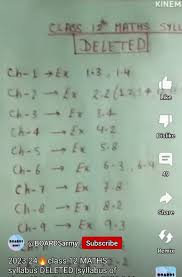 KINEM
CLASS 12th MATHS SYLL
DELETED
Ch-1 → Ex 1.3, 1.4
Ch-2 → Ex 2.2 (
Like
Ch-3 → Ex 3.4
Ch-4 → Ex 4.2
Dislike
Ch-5 → Ex 5.8
49
Ch-6 → Ex 6.3, 6.4
Ch-7 → Ex 7.8
Share
Ch-8 → Ex 8.2
Ch-9 → Ex
@BOARDSarmy Subscribe
Remix
2023-24🔥class 12 MATHS
syllabus DELETED (syllabus of